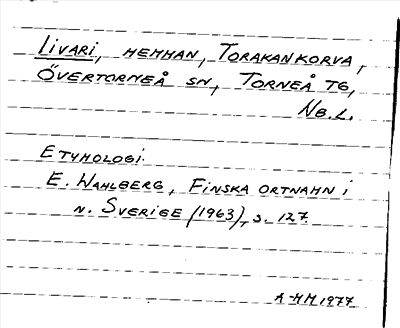 Iivari, HEMMAN, TORAKANKORVA,
ÖVERTORNEÅ SN, TORNEÅ TG,
NB.L.
ETYMOLOGI.
E. WAHLBERG, FINSKA ORTNAMN i
N. SVERIGE (1963), S. 127.
A-MM 1977